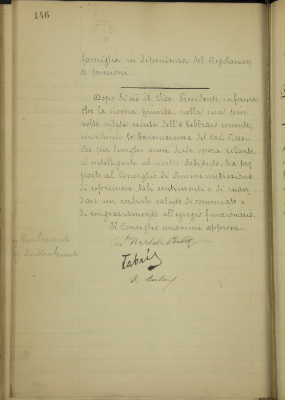 146
famiglia in dipendenza del Regolamen-
to pensione.
Dopo di ciò il Vice Presidente informa
che la nostra Giunta nella sua
seduta dell'8 Febbraio corrente,
ricordando le benemerenze del Cav. Rossi
che per lunghi anni diede opera zelante
ed intelligente al nostro Istituto, ha pro-
posto al Consiglio di Amministrazione
di esprimere tali sentimenti e di man-
dare un cordiale saluto di commiato e
di ringraziamento all'egregio funzionario.
Il Consiglio unanime approva.